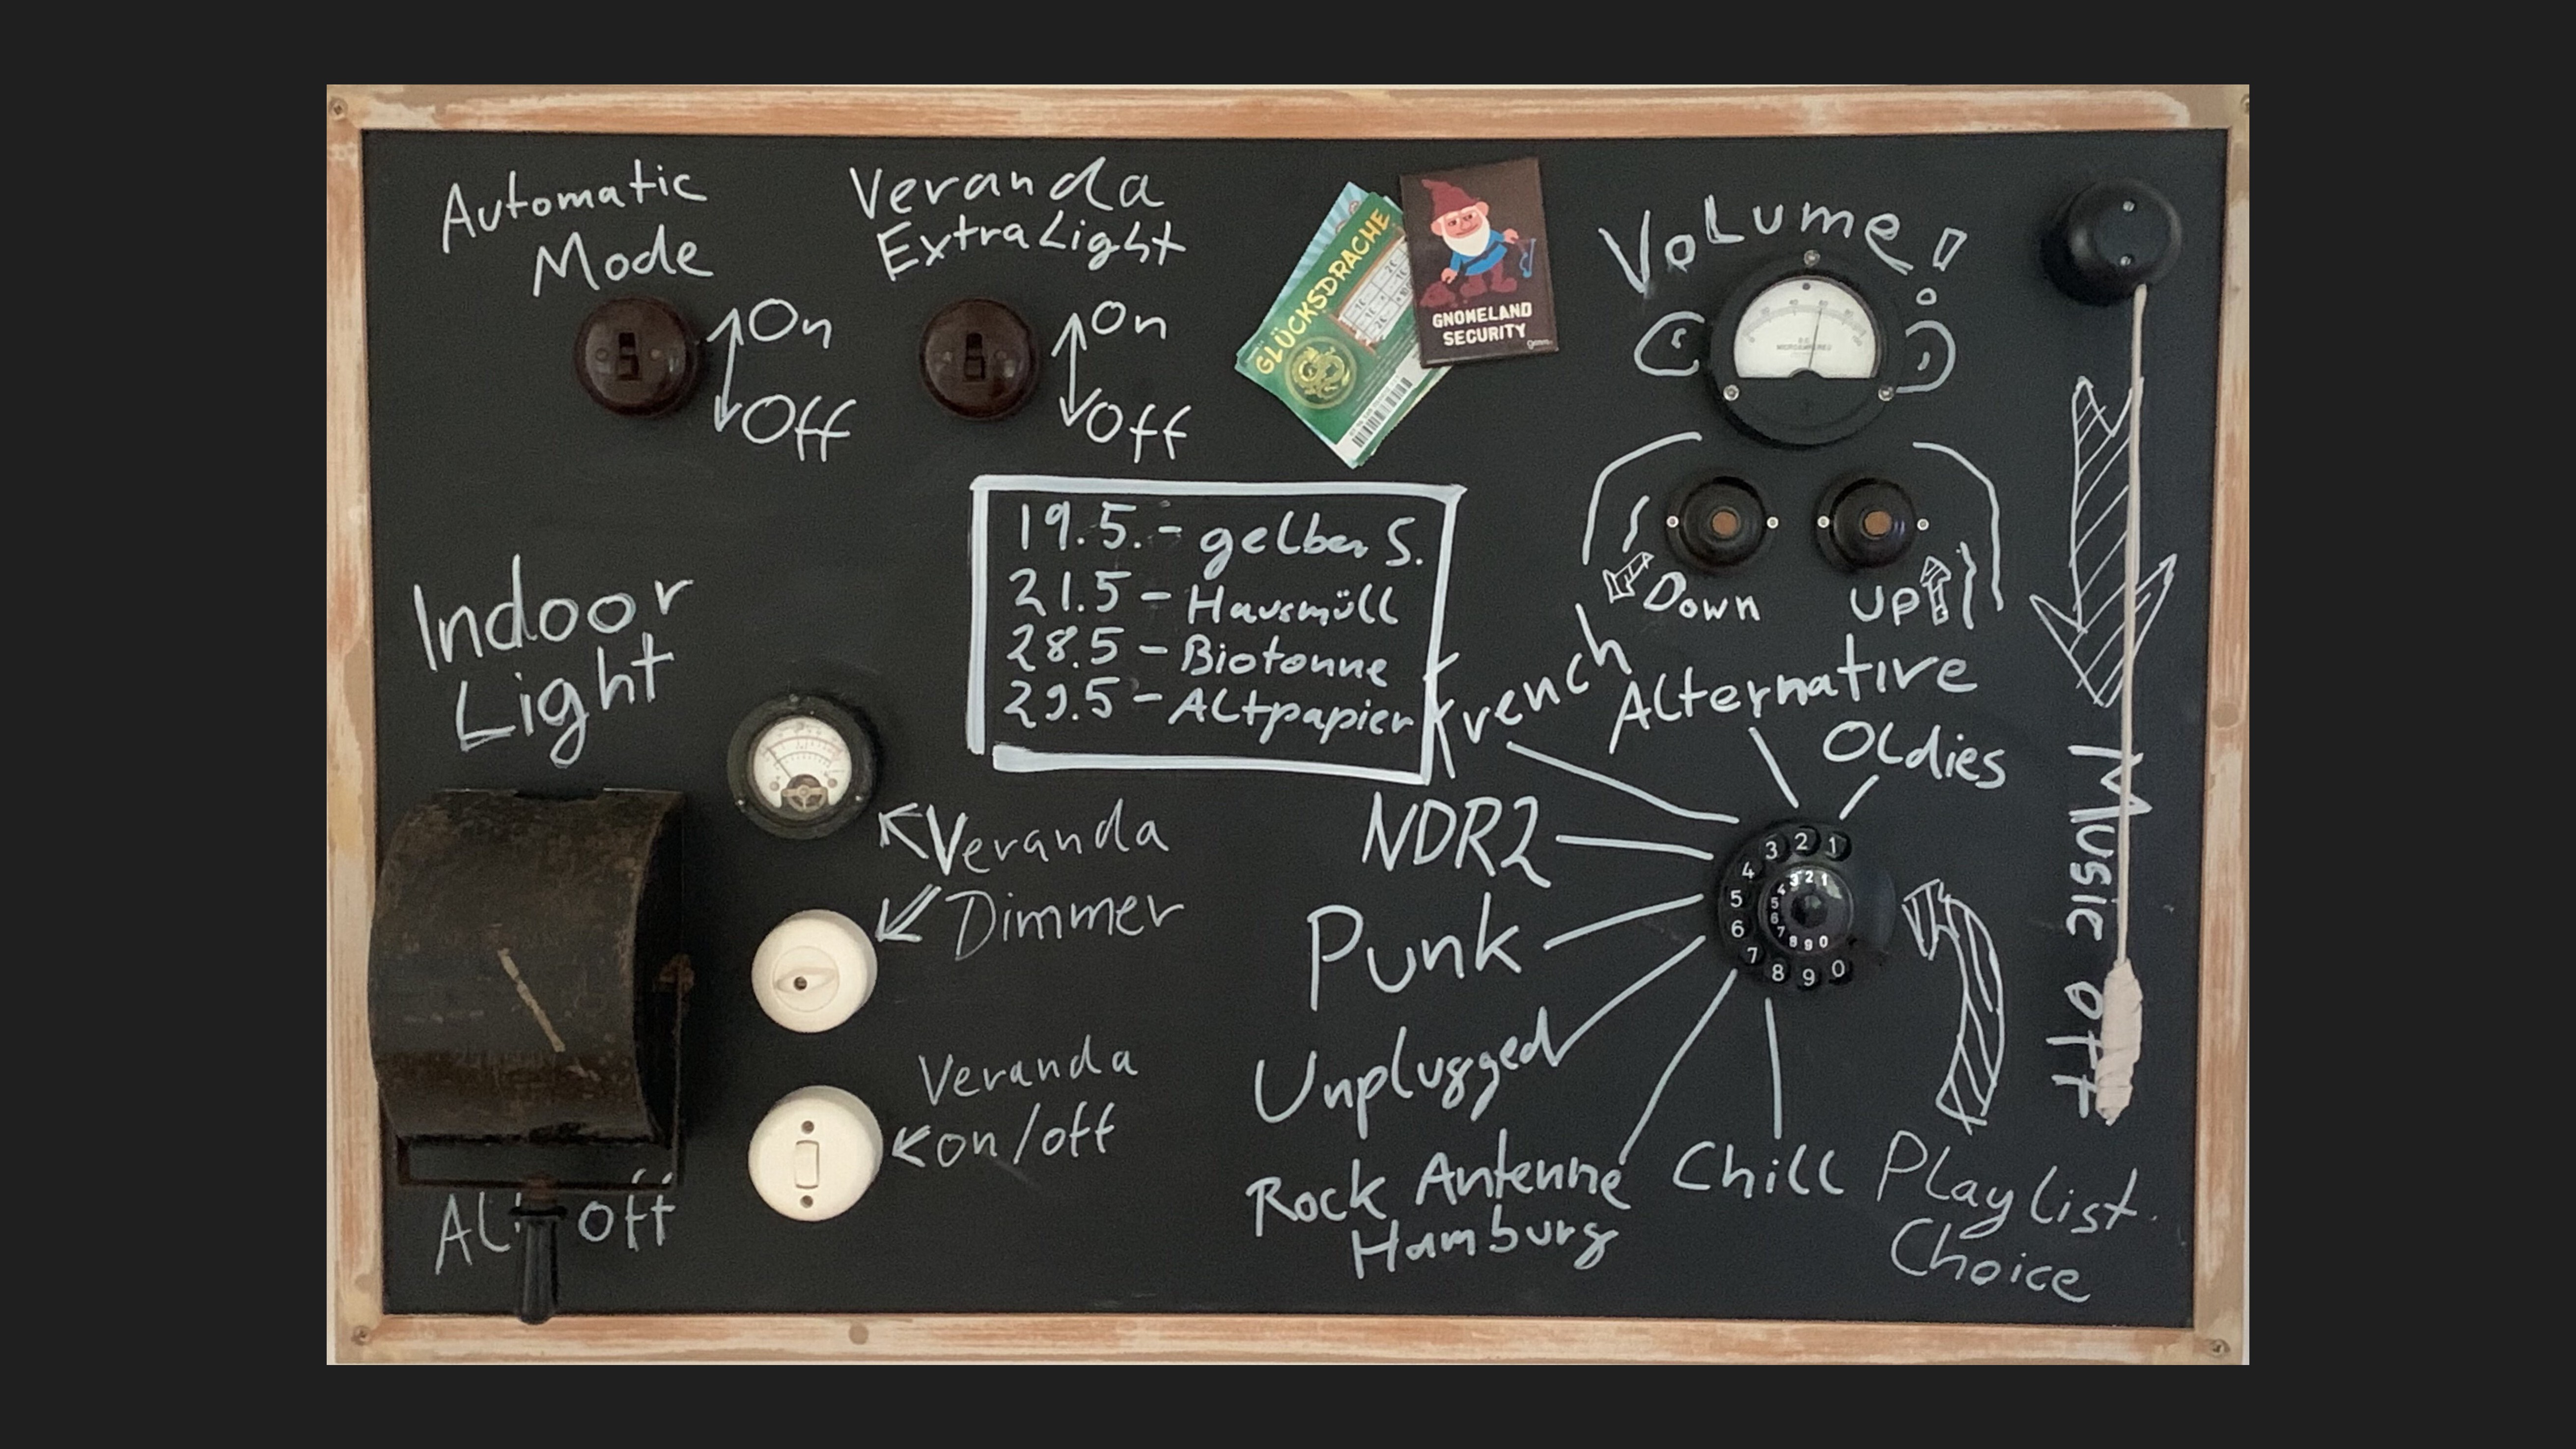 Automatic
Mode
On
Off
Veranda
Extra Light
On
Off
GLÜCKSDRACHE
GNOMELAND
SECURITY
Volume!
Down
Up
19.5.- gelber S.
21.5 - Hausmüll
28.5 - Biotonne
29.5 - Altpapier
Indoor
Light
Veranda
Dimmer
Veranda
on/off
All off
French
Alternative
Oldies
NDR2
Punk
Unplugged
Rock Antenne
Hamburg
Chill
Playlist
Choice
1 2 3 4 5 6 7 8 9 0
1 2 3 4 5 6 7 8 9 0
Music off